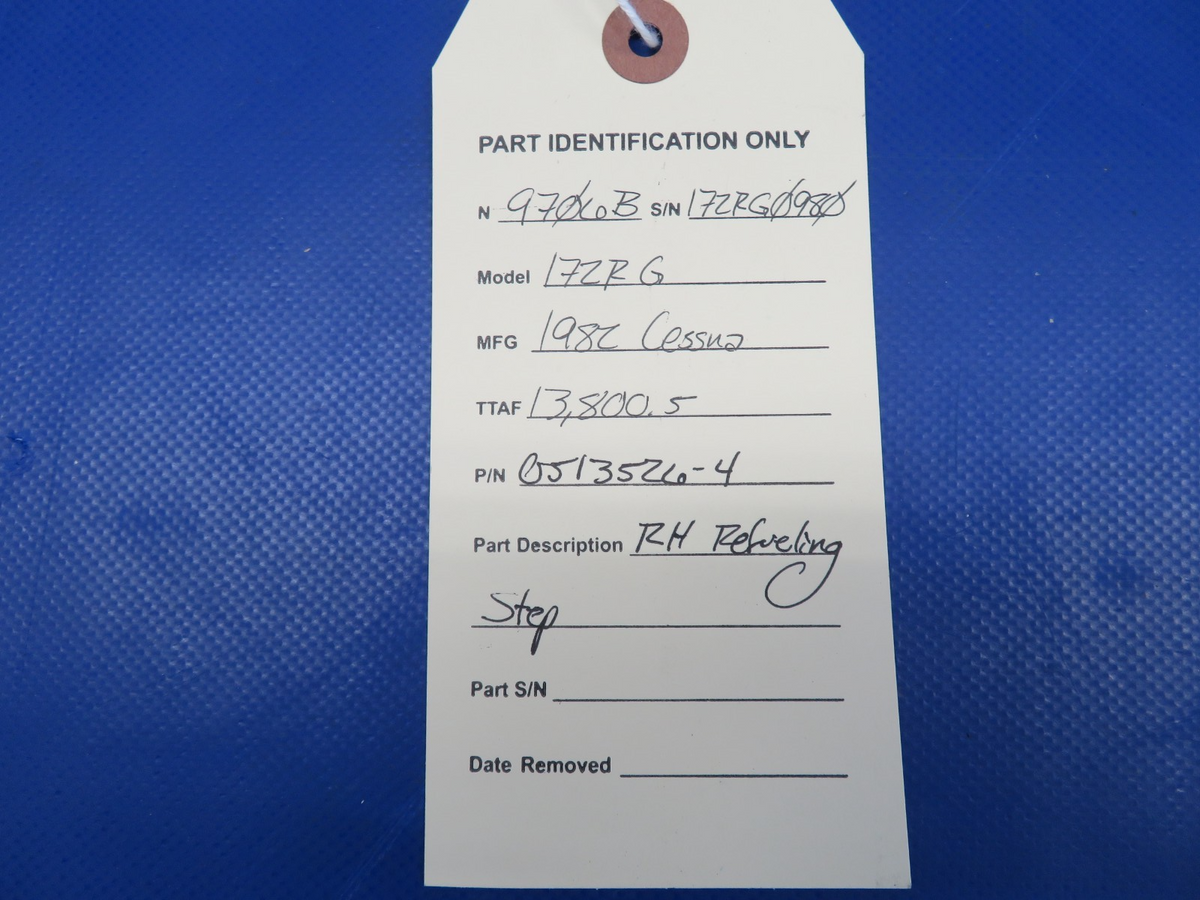 PART IDENTIFICATION ONLY
N 9706B S/N 172RG0980
Model 172RG
MFG 1982 Cessna
TTAF 13,800.5
P/N 0513526-4
Part Description RH Refueling
Step
Part S/N
Date Removed